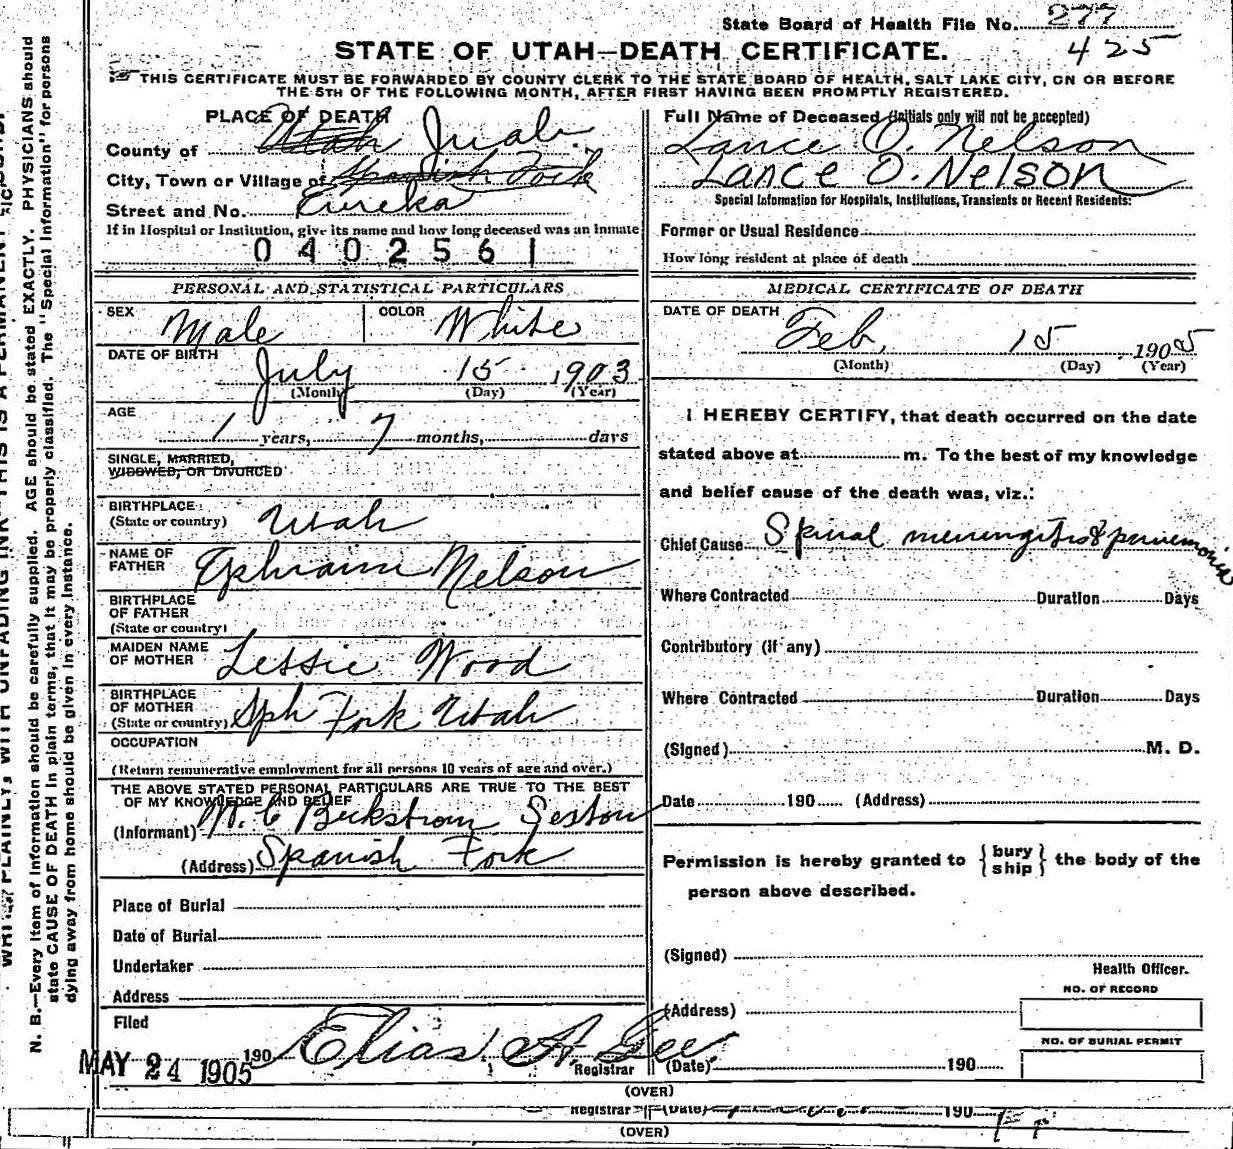 State Board of Health File No. 277
425
STATE OF UTAH—DEATH CERTIFICATE.
THIS CERTIFICATE MUST BE FORWARDED BY COUNTY CLERK TO THE STATE BOARD OF HEALTH, SALT LAKE CITY, ON OR BEFORE
THE 5TH OF THE FOLLOWING MONTH, AFTER FIRST HAVING BEEN PROMPTLY REGISTERED.
PLACE OF DEATH
County of Utah Juab
City, Town or Village of Spanish Fork
Street and No. Eureka
If in Hospital or Institution, give its name and how long deceased was an inmate
0402561
Full Name of Deceased (Initials only will not be accepted)
Lance O. Nelson
Lance O. Nelson
Special Information for Hospitals, Institutions, Transients or Recent Residents:
Former or Usual Residence
How long resident at place of death
PERSONAL AND STATISTICAL PARTICULARS
SEX Male
COLOR White
DATE OF BIRTH
July 15 1903
(Month) (Day) (Year)
AGE
1 years, 7 months, days
SINGLE, MARRIED,
WIDOWED, OR DIVORCED
BIRTHPLACE
(State or country) Utah
NAME OF
FATHER Ephraim Nelson
BIRTHPLACE
OF FATHER
(State or country)
MAIDEN NAME
OF MOTHER Lessie Wood
BIRTHPLACE
OF MOTHER
(State or country) Sph Fork Utah
OCCUPATION
(Return remunerative employment for all persons 10 years of age and over.)
THE ABOVE STATED PERSONAL PARTICULARS ARE TRUE TO THE BEST
OF MY KNOWLEDGE AND BELIEF
(Informant) M. C Beckstrom Sexton
(Address) Spanish Fork
Place of Burial
Date of Burial
Undertaker
Address
Filed
MAY 24 1905 190 Elias A. Gee
Registrar
MEDICAL CERTIFICATE OF DEATH
DATE OF DEATH
Feb. 15 1905
(Month) (Day) (Year)
I HEREBY CERTIFY, that death occurred on the date
stated above at m. To the best of my knowledge
and belief cause of the death was, viz.:
Chief Cause Spinal meningitis & pnuemonia
Where Contracted Duration Days
Contributory (if any)
Where Contracted Duration Days
(Signed) M. D.
Date 190 (Address)
Permission is hereby granted to {bury
ship} the body of the
person above described.
(Signed)
Health Officer.
NO. OF RECORD
(Address)
NO. OF BURIAL PERMIT
(Date) 190
(OVER)
Registrar (Date) 190
(OVER)
N. B.—Every item of information should be carefully supplied. AGE should be stated EXACTLY. PHYSICIANS should
state CAUSE OF DEATH in plain terms, that it may be properly classified. The "Special Information" for persons
dying away from home should be given in every instance.